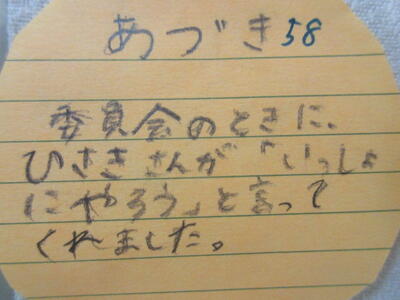 あづき58
委員会のときに、
ひさきさんが「いっしょ
にやろう」と言って
くれました。